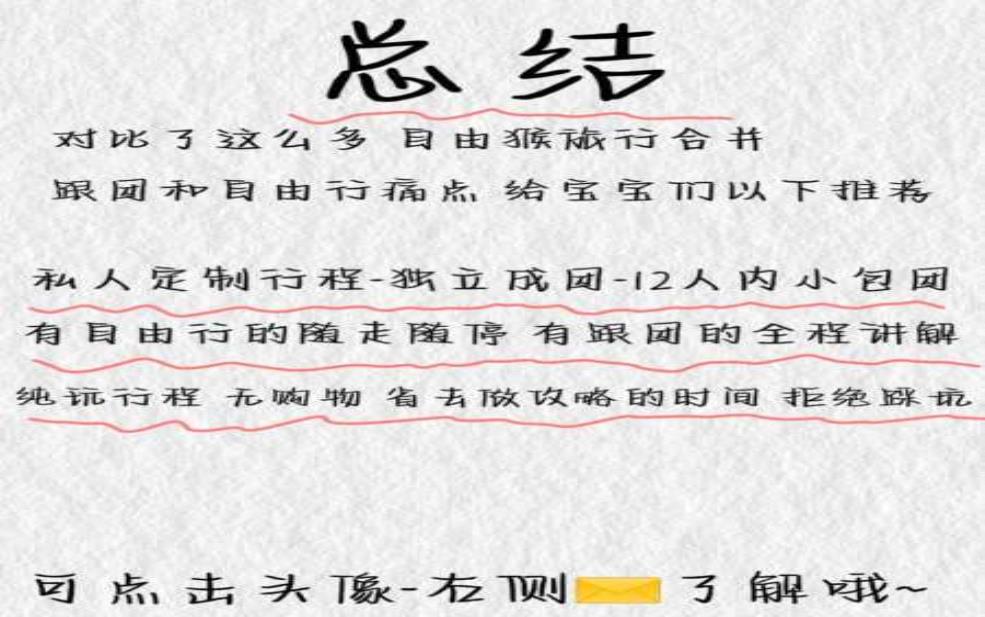 总结
对比了这么多 自由猴旅行合并
跟团和自由行痛点 给宝宝们以下推荐
私人定制行程-独立成团-12人内小包团
有自由行的随走随停 有跟团的全程讲解
纯玩行程 无购物 省去做攻略的时间 拒绝踩坑
可点击头像-右侧✉️了解哦~